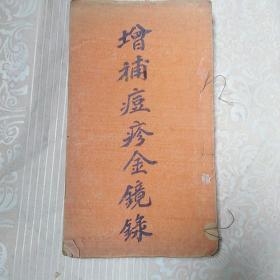 增補痘疹金鏡錄